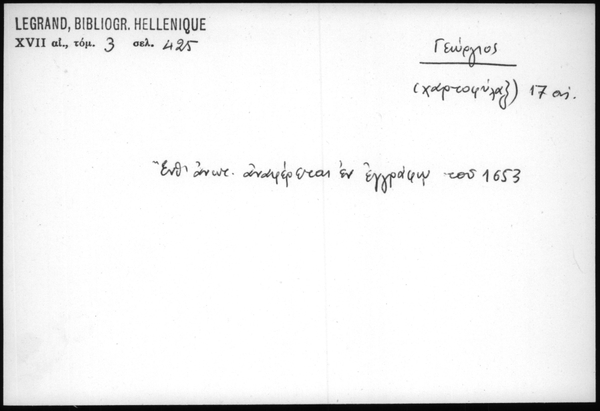 LEGRAND, BIBLIOGR. HELLENIQUE
XVII αἰ., τόμ. 3 σελ. 425
Γεώργιος
(χαρτοφύλαξ) 17 αἰ.
Ἔνθ' ἀνωτ. ἀναφέρεται ἐν ἐγγράφῳ τοῦ 1653